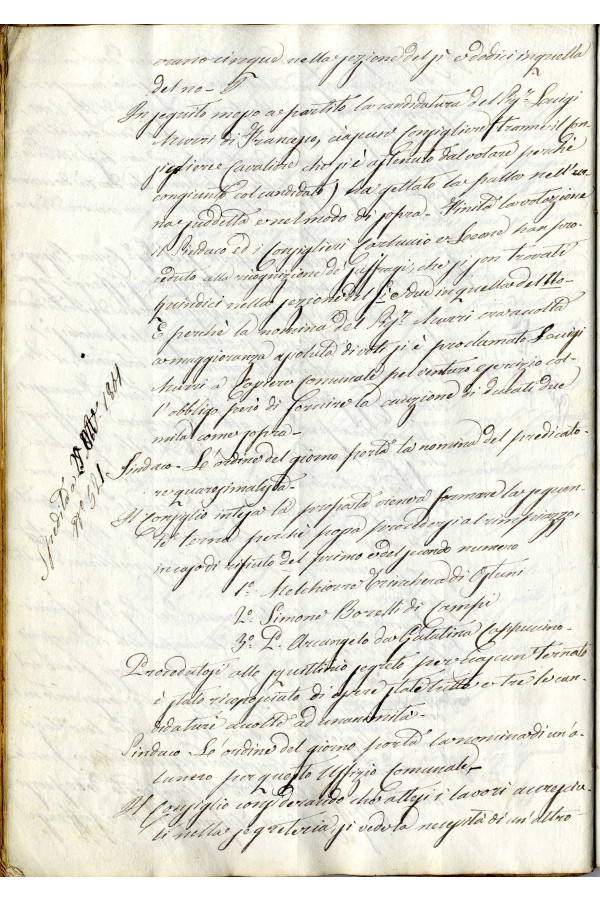 erano cinque nella sezione del sì e dodici in quella
del no-
In seguito messo a partito la candidatura del Sig.r Luigi
Murri di Francesco, ciascuno Consigliere (tranne il Con
sigliere Cavaliere che si è astenuto dal votare perchè
congiunto col candidato) ha gettato la palla nell'ur
na suddetta e nel modo di sopra- Finita la votazione
il Sindaco ed i Consiglieri Carluccio e Leone han pro
ceduto alla ricognizione de' suffragi, che si son trovati
quindici nella sezione del sì e due in quella del no-
E perchè la nomina del Sig.r Murri era accolta
a maggioranza assoluta di voti si è proclamato Luigi
Murri a Cassiere Comunale pel venturo esercizio col
l'obbligo però di fornire la cauzione di ducati due
mila come sopra-
Sindaco- Le ordine del giorno porta la nomina del predicato-
re quaresimalista-
Il Consiglio intesa la proposta viene a formare la seguen
te terna perchè possa procedersi al rimpiazzo,
in caso di rifiuto del primo e del secondo numero
1.º Melchiorre Trinchera di Ostuni
2.º Simone Boretti di Campi
3.º P. Arcangelo da Galatina Cappuccino-
Procedutosi allo squittinio segreto per ciascun ternato
è stato riconosciuto di essere state tutte e tre le can
didature accolte ad unanimità-
Sindaco- Le ordine del giorno porta la nomina di un a-
lunno per questo Uffizio Comunale-
Il Consiglio considerando che attesi i lavori accresciu-
ti nella segreteria, si vede la necessità di un altro
Spedito a 1861
nº 521